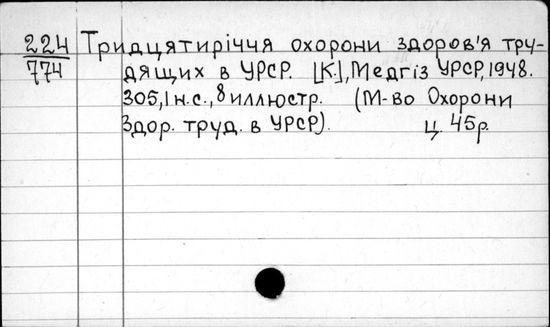 224 Тридцятиріччя охорони здоров'я тру-
774 дящих в УРСР. [К.], Медгіз УРСР, 1948.
305, 1 н.с., 8 иллюстр. (М-во Охорони
Здор. труд. в УРСР). ц. 45р.